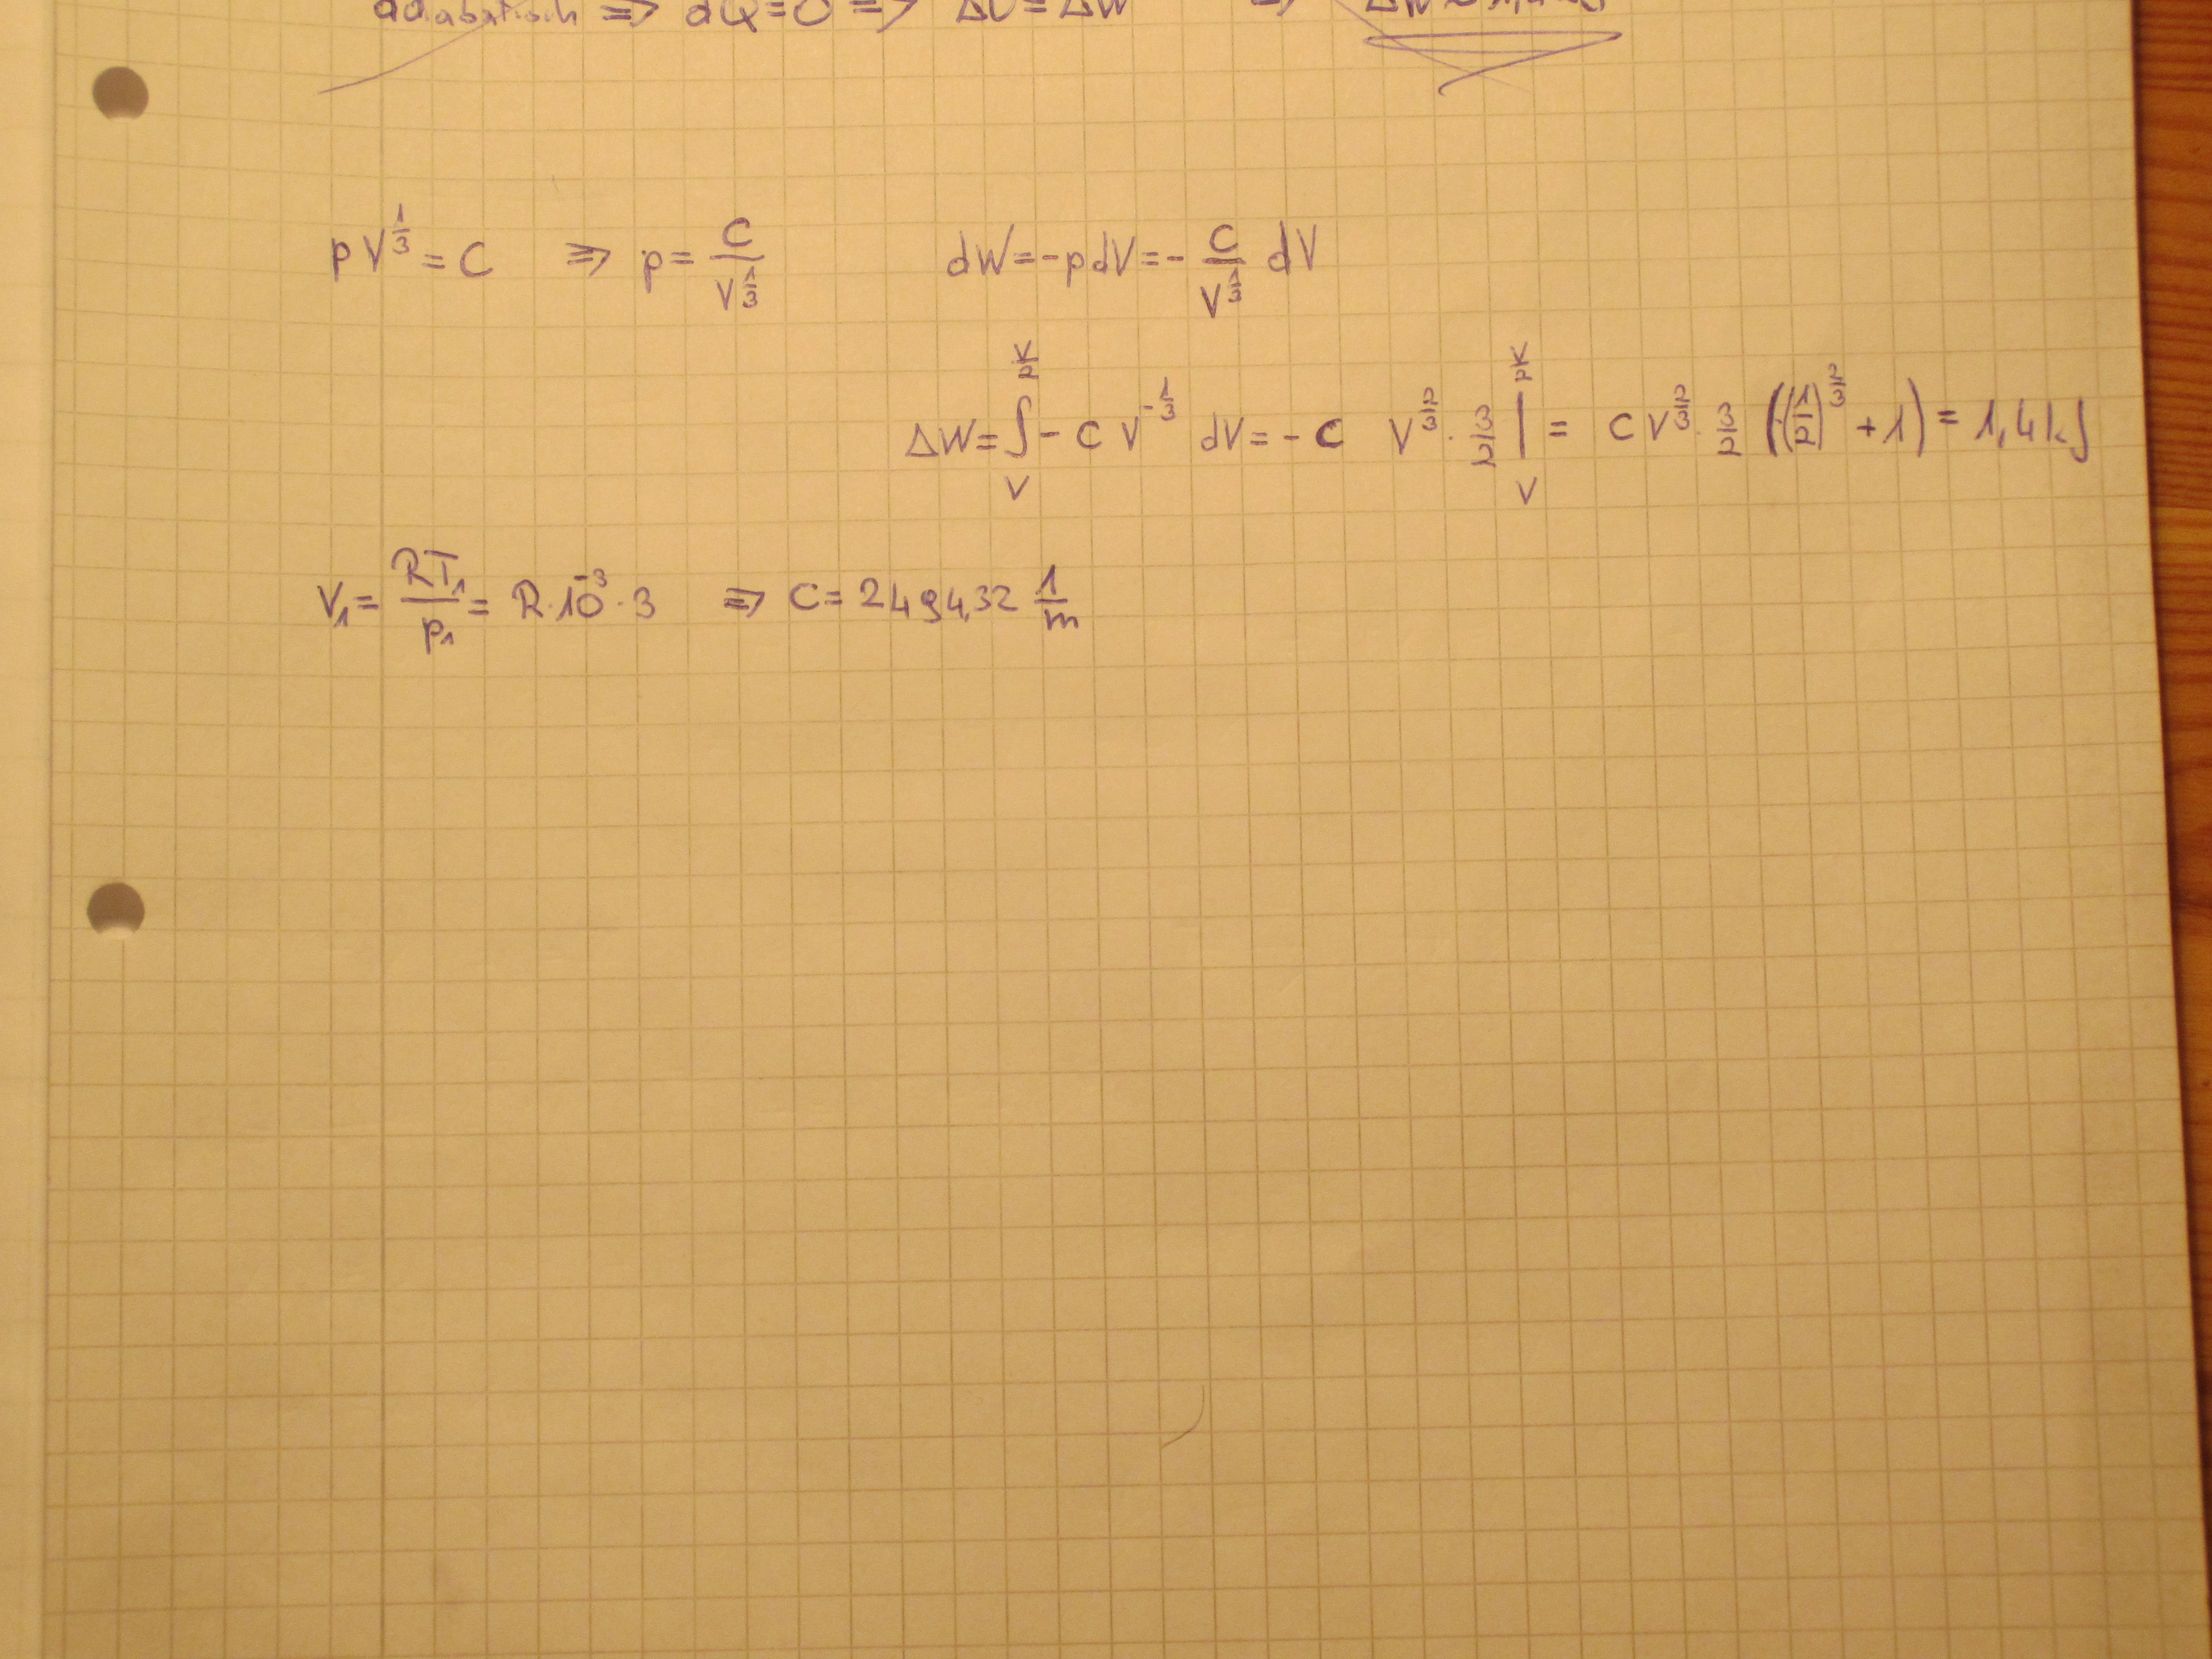 adiabatisch => dQ=0 => ΔU=ΔW =>
pV^{1/3} = C => p = C/V^{1/3} dW = -p dV = - C/V^{1/3} dV
ΔW = ∫_{V}^{V/2} - C V^{-1/3} dV = - C V^{2/3} · 3/2 |_{V}^{V/2} = C V^{2/3} · 3/2 (-(1/2)^{2/3} + 1) = 1,4 kJ
V₁ = RT₁/p₁ = R·10^{-3}·3 => C = 2494,32 1/m